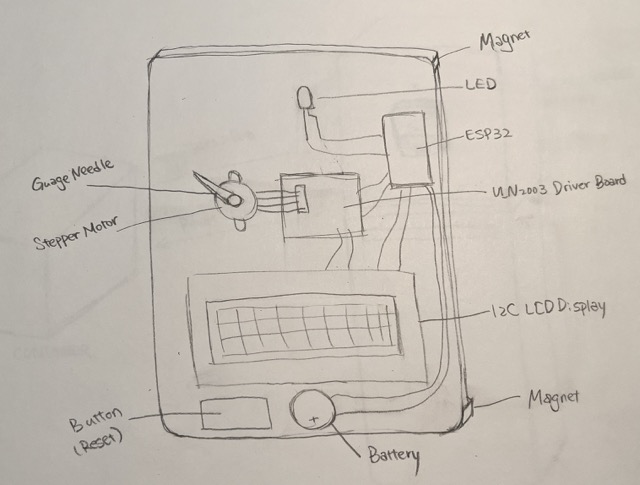 Magnet
LED
ESP32
Guage Needle
ULN2003 Driver Board
Stepper Motor
I2C LCD Display
Magnet
Button
(Reset)
+
Battery